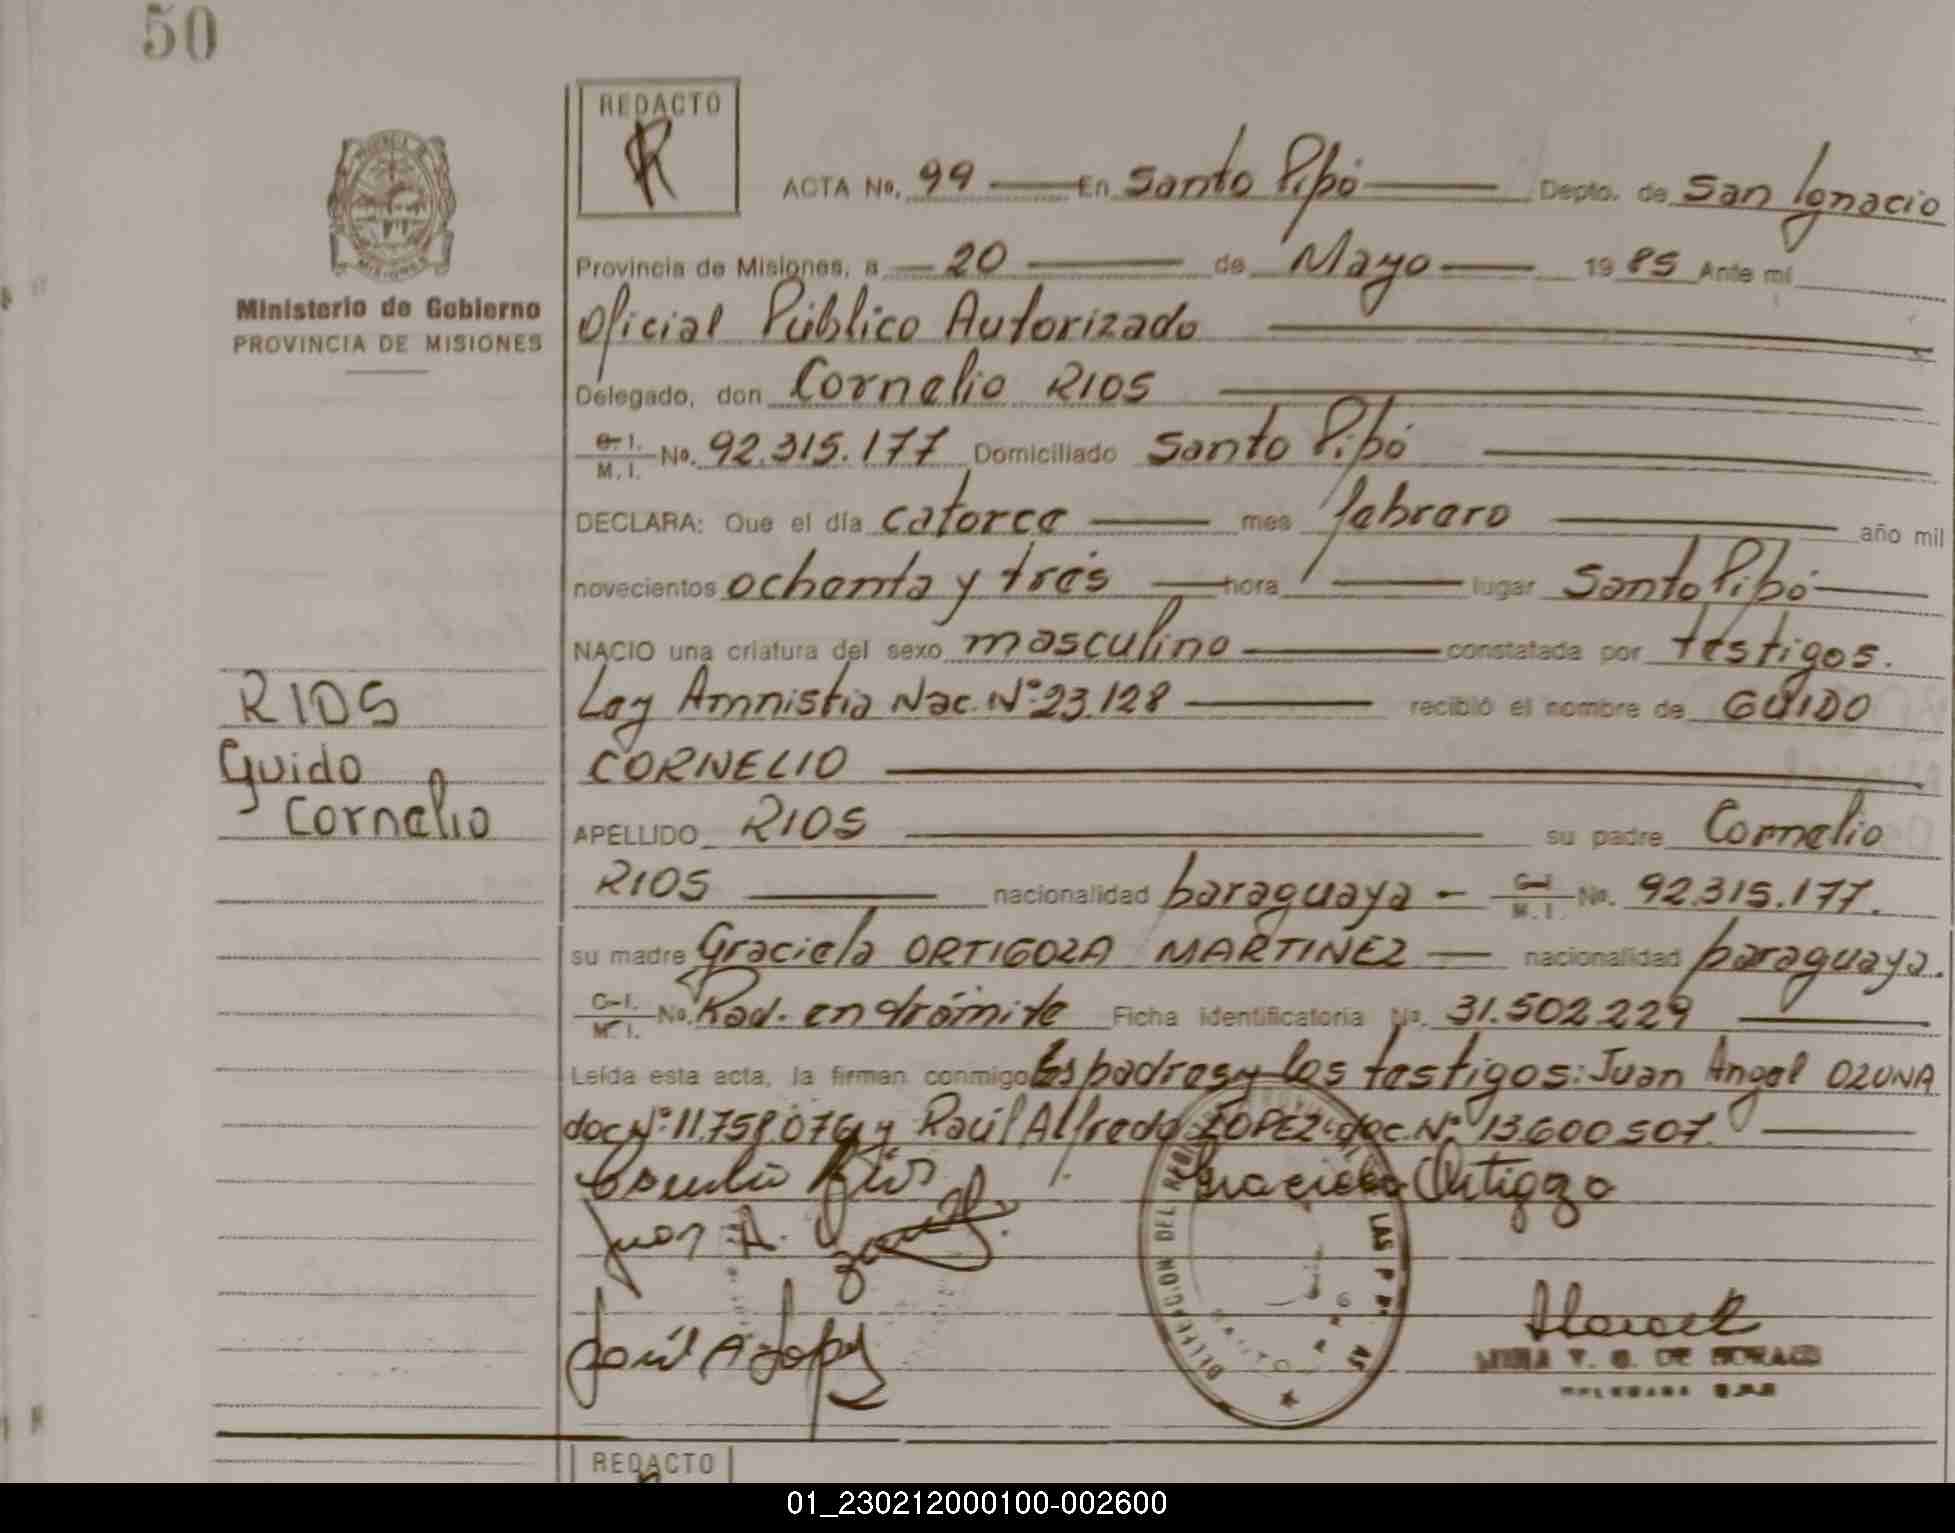 50
REDACTO
R
ACTA No. 99 En Santo Pipó Depto. de San Ignacio
Provincia de Misiones, a 20 de Mayo 1985 Ante mí
Ministerio de Gobierno
PROVINCIA DE MISIONES
Oficial Público Autorizado
Delegado, don Cornelio RIOS
C. I. M. I. No. 92.315.177 Domiciliado Santo Pipó
DECLARA: Que el día catorce mes febrero año mil
novecientos ochenta y trés hora / lugar Santo Pipó
NACIO una criatura del sexo masculino constatada por testigos.
Ley Amnistia Nac. Nº 23.128 recibió el nombre de GUIDO
CORNELIO
RIOS
Guido
Cornelio
APELLIDO RIOS su padre Cornelio
RIOS nacionalidad paraguaya - C-I M. I. No. 92.315.177.
su madre Graciela ORTIGOZA MARTINEZ nacionalidad paraguaya.
C-I. M. I. No. Rad. en trámite Ficha identificatoria No. 31.502.229
Leída esta acta, la firman conmigo los padres y los testigos: Juan Angel OZUNA
doc. Nº 11.758.076 y Raúl Alfredo LOPEZ doc. Nº 13.600.507.
Cornelio Rios Graciela Ortigoza
Juan A.
Raúl A Lopez
DELEGACION DEL LAS
DE MORAES
REDACTO
01_230212000100-002600